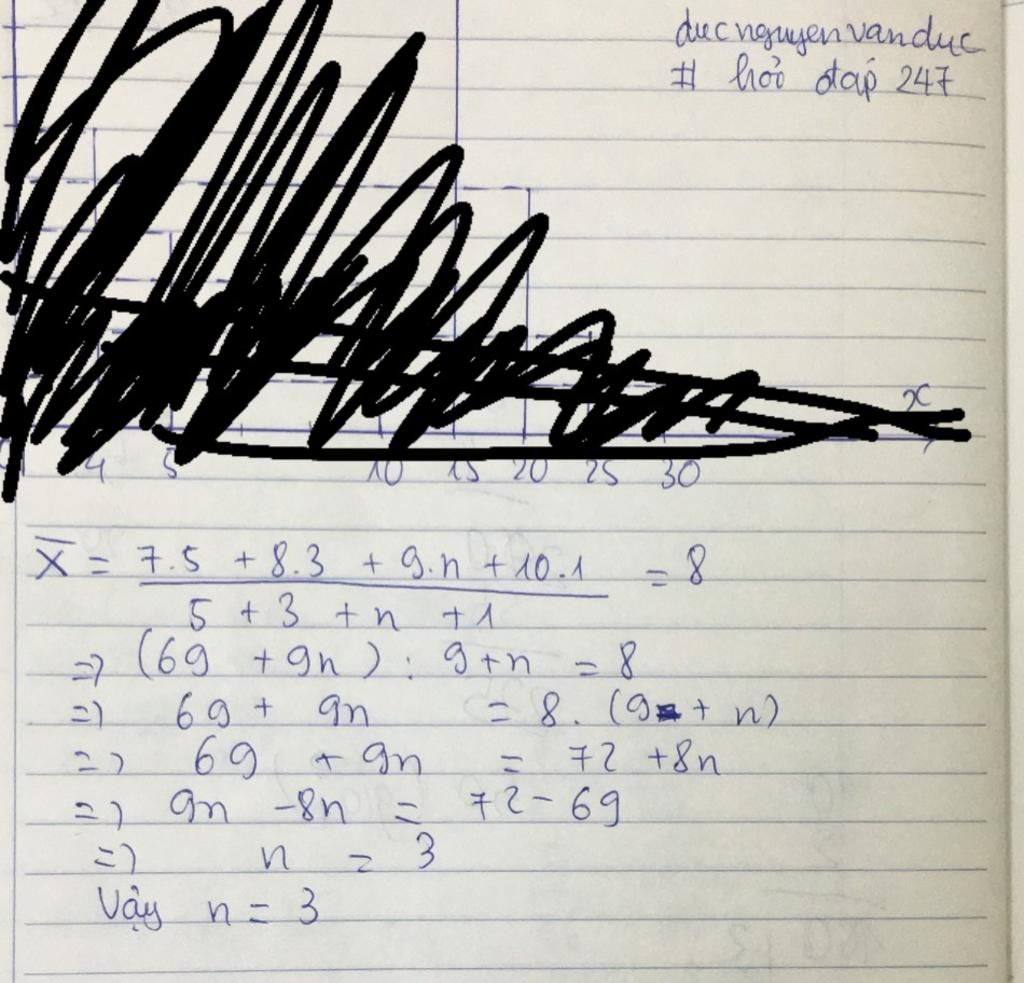 ducnguyenvanduc
# hỏi đáp 247
x
4 5 10 15 20 25 30
X̄ = 7.5 + 8.3 + 9.n + 10.1 = 8
5 + 3 + n + 1
=> (69 + 9n) : 9+n = 8
=> 69 + 9n = 8. (9 + n)
=> 69 + 9n = 72 +8n
=> 9n -8n = 72-69
=> n = 3
Vậy n = 3